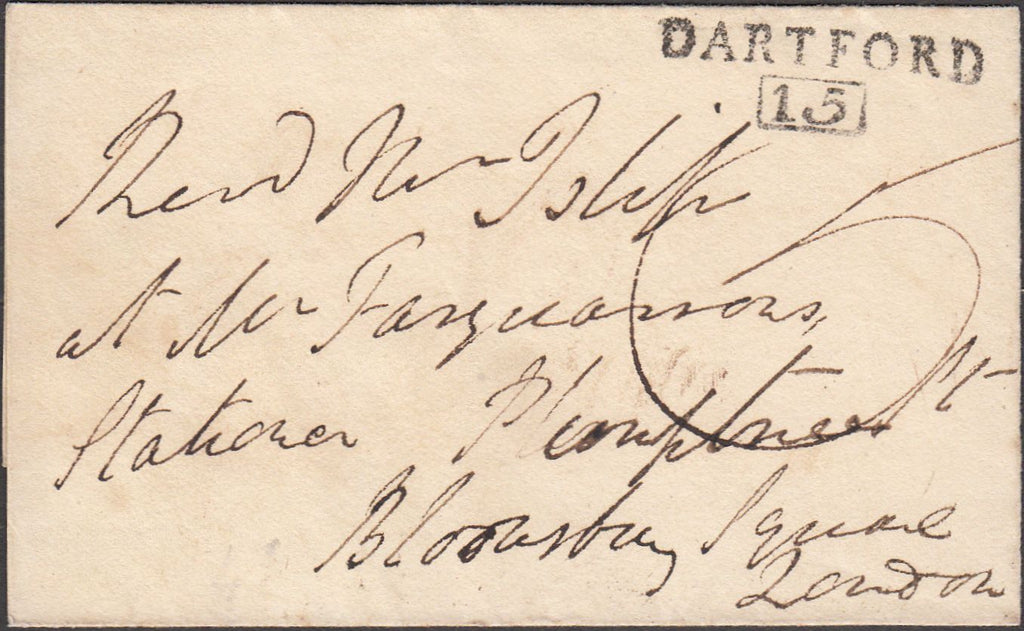 DARTFORD
15
Revd Mr Islip
at Mr Farquarsons,
Stationer Plumptree St
Bloomsbury Square
London